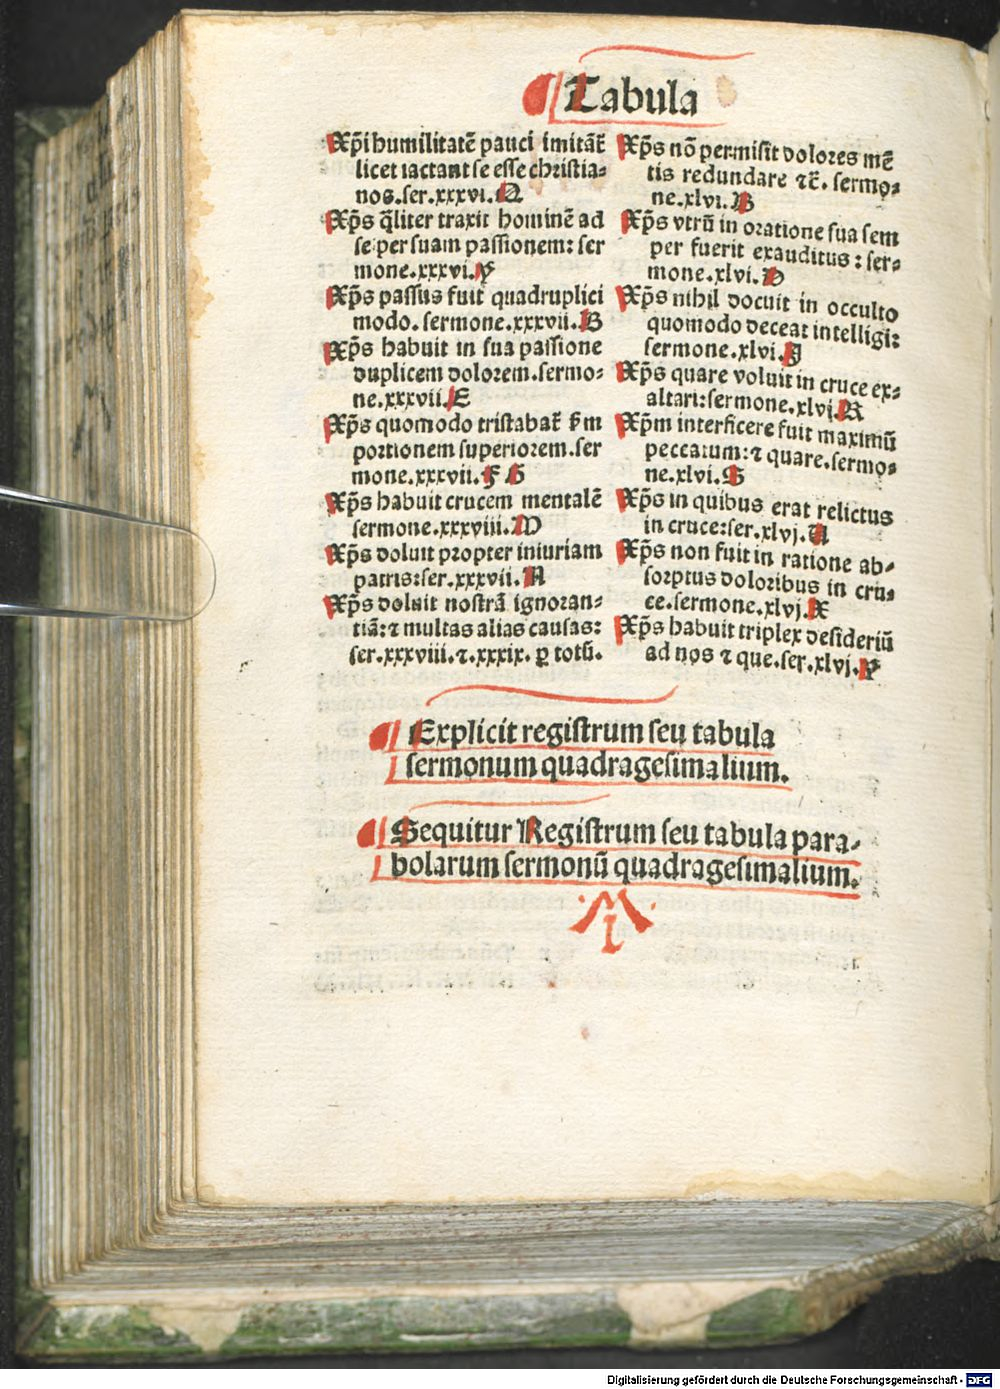 ¶ Tabula
Xp̄i humilitatē pauci imitāt̄
licet iactant se esse christia-
nos. ser. xxxvi. Q
Xp̄s q̄liter traxit hominē ad
se per suam passionem: ser
mone. xxxvi. Y
Xp̄s passus fuit quadruplici
modo. sermone. xxxvii. B
Xp̄s habuit in sua passione
duplicem dolorem. sermo-
ne. xxxvii. E
Xp̄s quomodo tristabat̄ s̄m
portionem superiorem. ser
mone. xxxvii. F G
Xp̄s habuit crucem mentalē
sermone. xxxviii. D
Xp̄s doluit propter iniuriam
patris: ser. xxxvii. N
Xp̄s doluit nostrā ignoran-
tiā: ⁊ multas alias causas:
ser. xxxviii. ⁊. xxxix. ꝑ totū.
Xp̄s nō permisit dolores mē
tis redundare ⁊c̄. sermo-
ne. xlvi. B
Xp̄s vtrū in oratione sua sem
per fuerit exauditus: ser-
mone. xlvi. D
Xp̄s nihil docuit in occulto
quomodo deceat intelligi:
sermone. xlvi. J
Xp̄s quare voluit in cruce ex-
altari: sermone. xlvj. R
Xp̄m interficere fuit maximū
peccatum: ⁊ quare. sermo-
ne. xlvi. S
Xp̄s in quibus erat relictus
in cruce: ser. xlvj. U
Xp̄s non fuit in ratione ab-
sorptus doloribus in cru-
ce. sermone. xlvj. X
Xp̄s habuit triplex desideriū
ad nos ⁊ que. ser. xlvj. Y
¶ Explicit registrum seu tabula
sermonum quadragesimalium.
¶ Sequitur Registrum seu tabula para-
bolarum sermonū quadragesimalium.
Digitalisierung gefördert durch die Deutsche Forschungsgemeinschaft - DFG